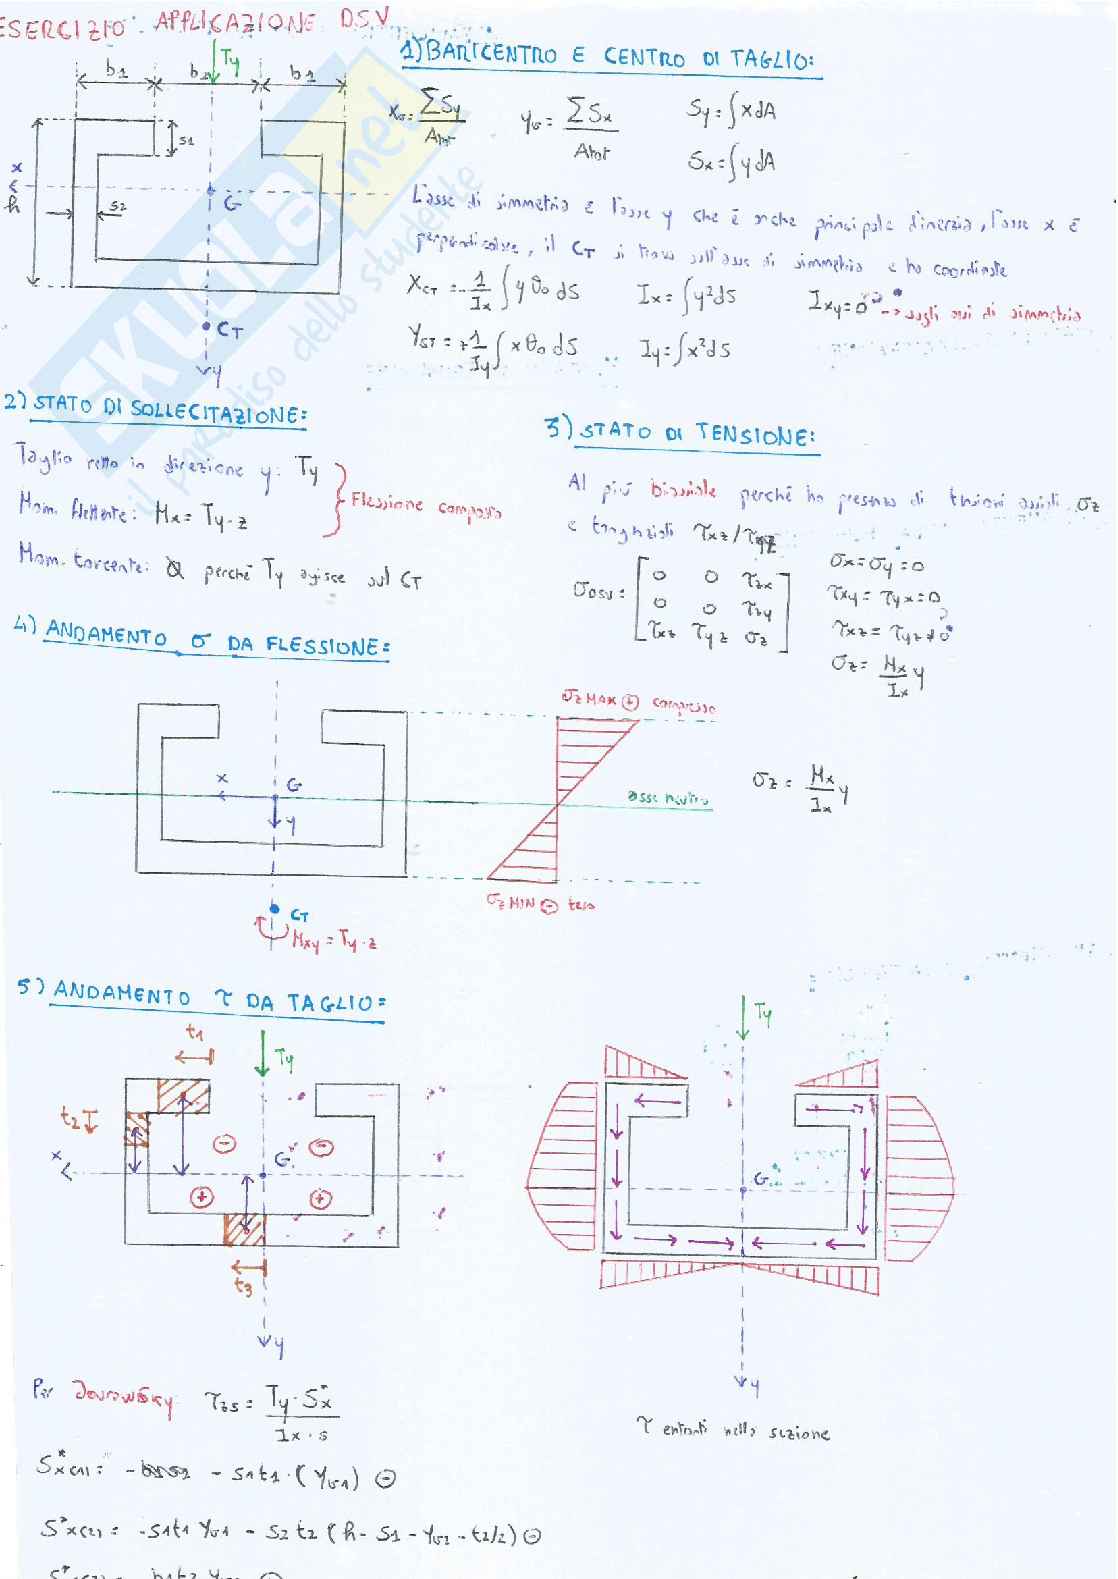 ESERCIZIO: APPLICAZIONE DSV
b1 b2 b1
Ty
s1
x
h
s2
G
CT
y
SKUOLA.net
il paradiso dello studente
1) BARICENTRO E CENTRO DI TAGLIO:
XG = ΣSy / Atot
yG = ΣSx / Atot
Sy = ∫xdA
Sx = ∫ydA
L'asse di simmetria è l'asse y che è anche principale d'inerzia, l'asse x è
perpendicolare, il CT si trova sull'asse di simmetria e ha coordinate
XCT = -1/Ix ∫ y θo dS
Ix = ∫y²dS
Ixy = 0 → sugli assi di simmetria
YCT = +1/Iy ∫ x θo dS
Iy = ∫x²dS
2) STATO DI SOLLECITAZIONE:
Taglio retto in direzione y: Ty
Mom. flettente: Mx = Ty·z
Flessione composta
Mom. torcente: 0 perché Ty agisce sul CT
3) STATO DI TENSIONE:
Al più biassiale perché ho presenza di tensioni assiali σz
e tangenziali τxz / τyz
σDSV = [0 0 τzx
0 0 τzy
τxz τyz σz]
σx = σy = 0
τxy = τyx = 0
τxz = τyz ≠ 0
σz = Mx/Ix y
4) ANDAMENTO σ DA FLESSIONE:
σz MAX ⊕ compresso
x
G
y
asse neutro
σz = Mx/Ix y
σz MIN ⊖ teso
CT
Mxy = Ty·z
5) ANDAMENTO τ DA TAGLIO:
t1
Ty
t2
x
⊖ ⊖
G
⊕ ⊕
t3
y
Ty
G
y
τ entranti nella sezione
Per Jourawsky τzs = Ty·S*x / Ix·s
S*x(1) = - s1t1·(yG1) ⊖
S*x(2) = -s1t1 yG1 - s2 t2 (h - s1 - yG2 - t2/2) ⊖